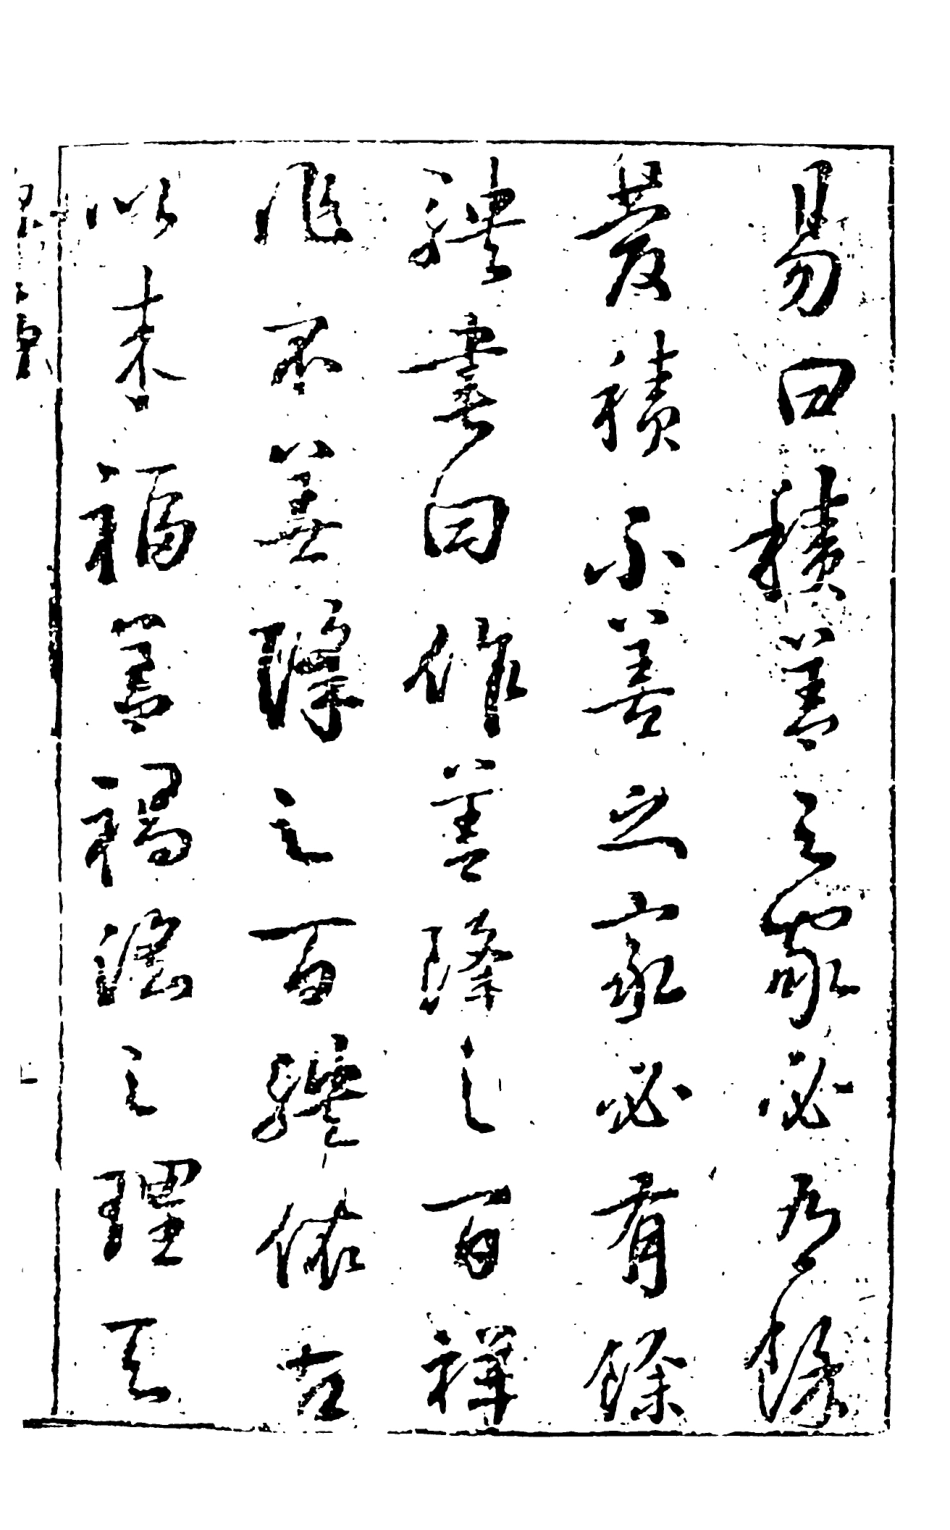 易曰積善之家必有餘
慶積不善之家必有餘
殃書曰作善降之百祥
作不善降之百殃依古
以来福善禍淫之理天